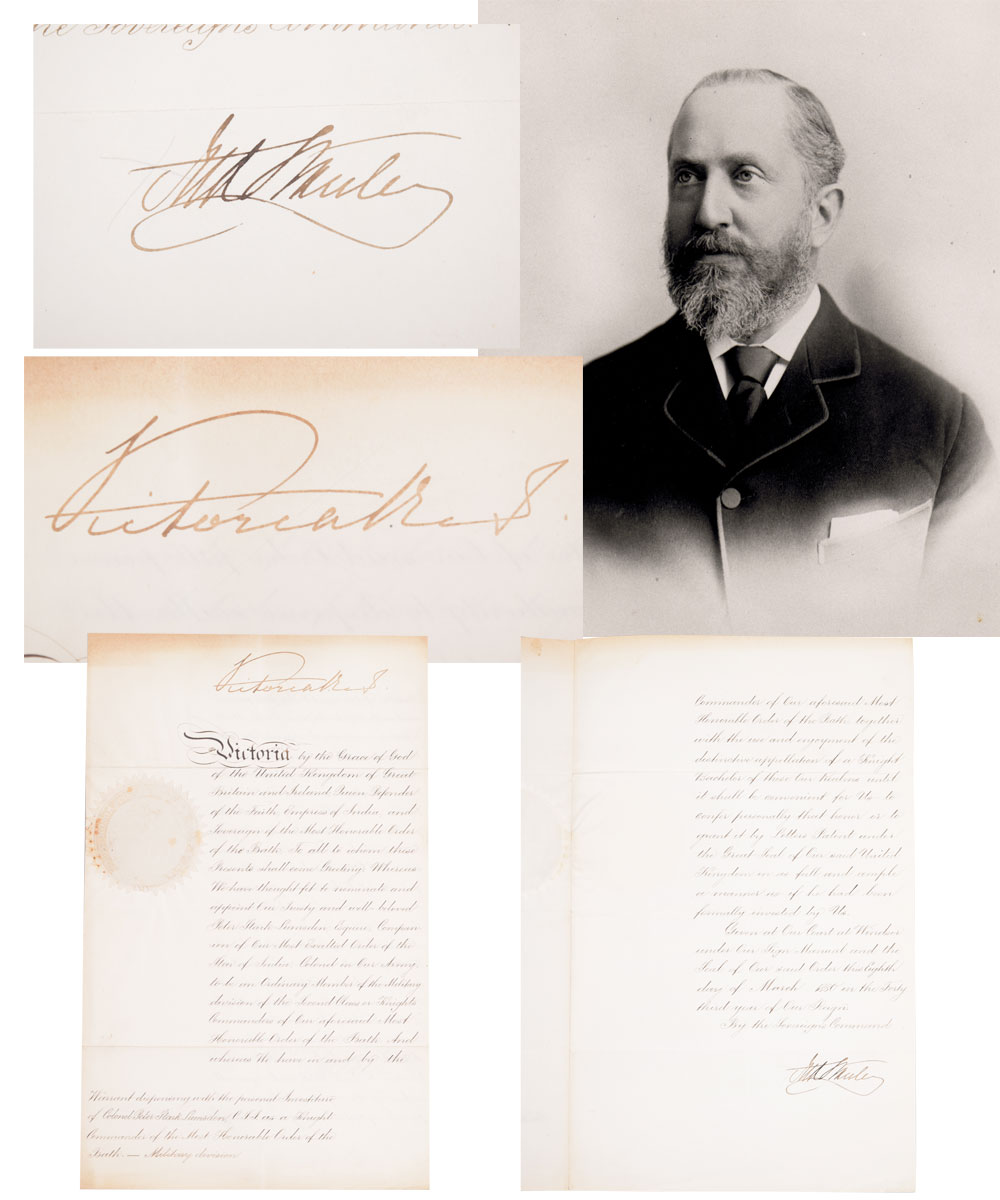 the Sovereign's Command.
Victoria R. & I.
Victoria R. & I.
Victoria by the Grace of God
of the United Kingdom of Great
Britain and Ireland Queen Defender
of the Faith Empress of India, and
Sovereign of the Most Honorable Order
of the Bath To all to whom these
Presents shall come Greeting Whereas
We have thought fit to nominate and
appoint Our Trusty and well-beloved
Peter Stark Lumsden Esquire, Compan-
ion of Our Most Exalted Order of the
Star of India, Colonel in Our Army,
to be an Ordinary Member of the Military
division of the Second Class or Knights
Commanders of Our aforesaid Most
Honorable Order of the Bath And
whereas We have in and by the
Warrant dispensing with the personal Investiture
of Colonel Peter Stark Lumsden, C.S.I. as a Knight
Commander of the Most Honorable Order of the
Bath. — Military division
Commander of Our aforesaid Most
Honorable Order of the Bath together
with the use and enjoyment of the
distinctive appellation of a Knight
Bachelor of these Our Realms until
it shall be convenient for Us to
confer personally that honor or to
grant it by Letters Patent under
the Great Seal of Our said United
Kingdom in as full and ample
a manner as if he had been
formally invested by Us.
Given at Our Court at Windsor
under Our Sign Manual and the
Seal of Our said Order this Eighth
day of March 1880 in the Forty
third year of Our Reign.
By the Sovereign's Command.